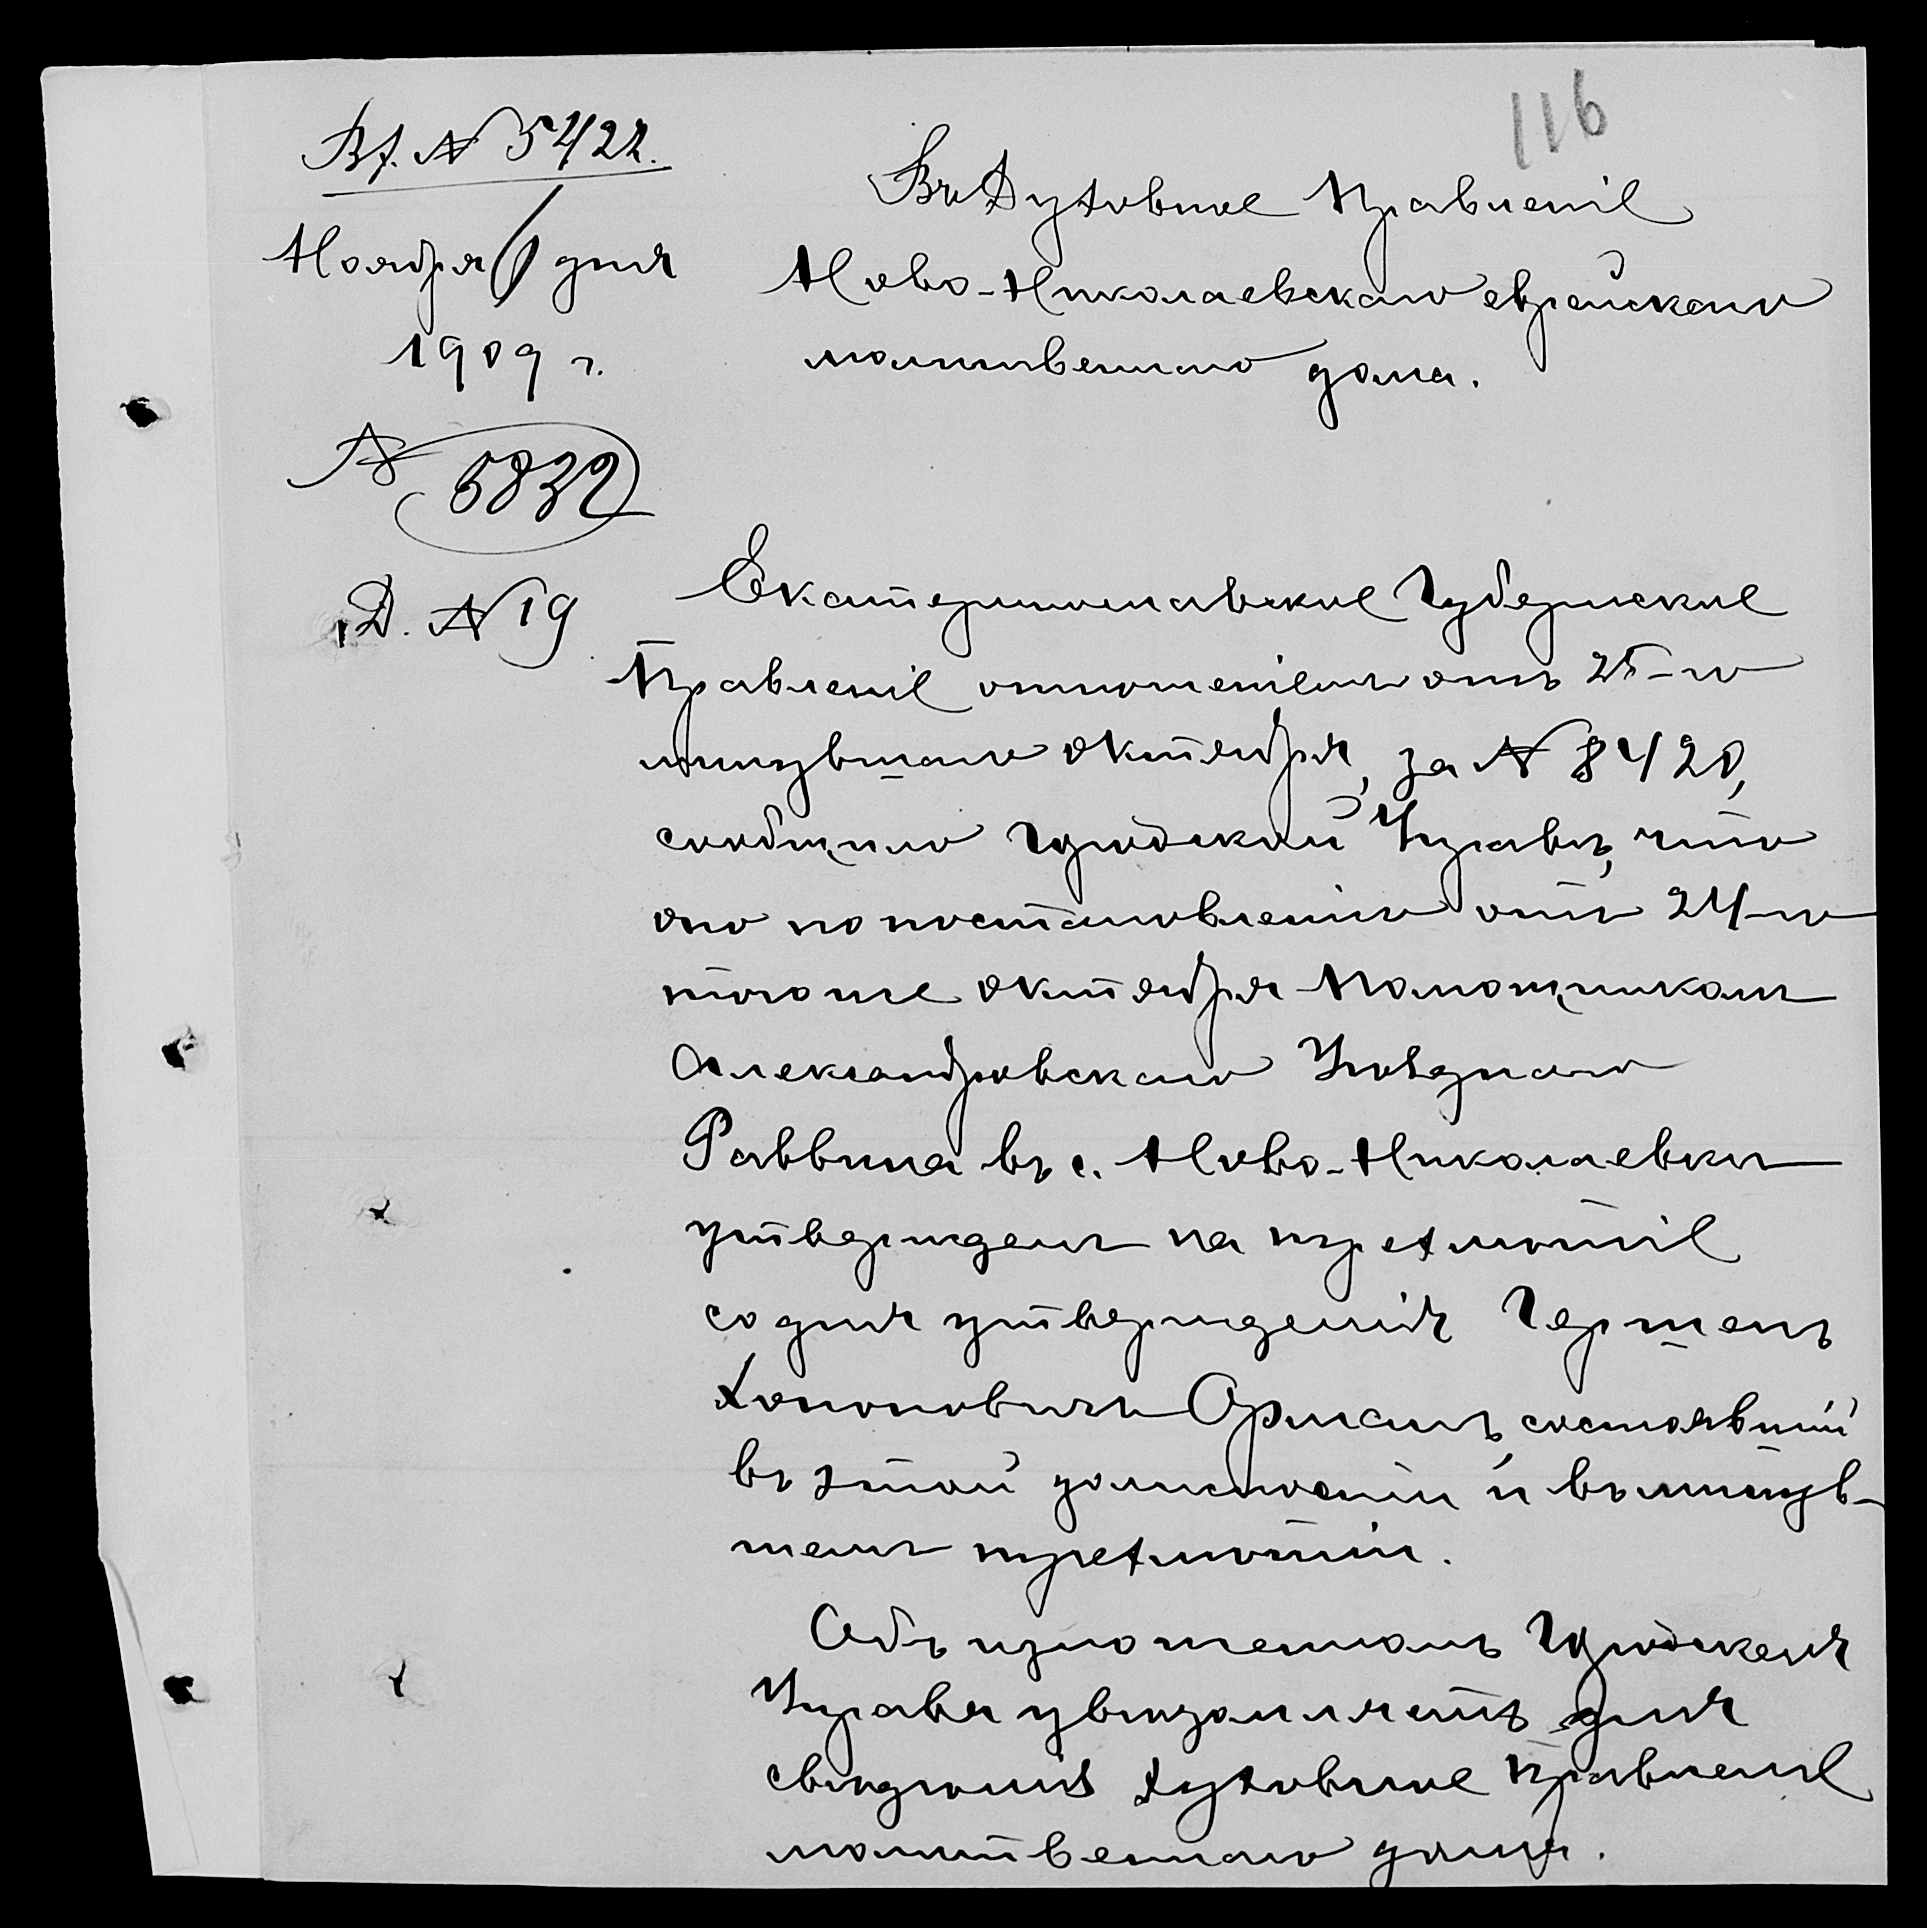 116
Вх. № 5422.
Ноября 6 дня
1909 г.
№ 5832
Д. № 19
Въ Духовное Правленіе
Ново-Николаевскаго еврейскаго
молитвеннаго дома.
Екатеринославское Губернское
Правленіе отношеніемъ отъ 25-го
минувшаго октября, за № 8420,
сообщило Городской Управѣ, что
оно по постановленію отъ 24-го
того же октября Помощникомъ
Александровскаго Уѣзднаго
Раввина въ с. Ново-Николаевкѣ
утвержденъ на трехлѣтіе
со дня утвержденія Гершенъ
Хононовичъ Орманъ, состоявшій
въ этой должности и въ минув-
шемъ трехлѣтіи.
Объ изложенномъ Городская
Управа увѣдомляетъ для
свѣдѣнія духовное правленіе
молитвеннаго дома.